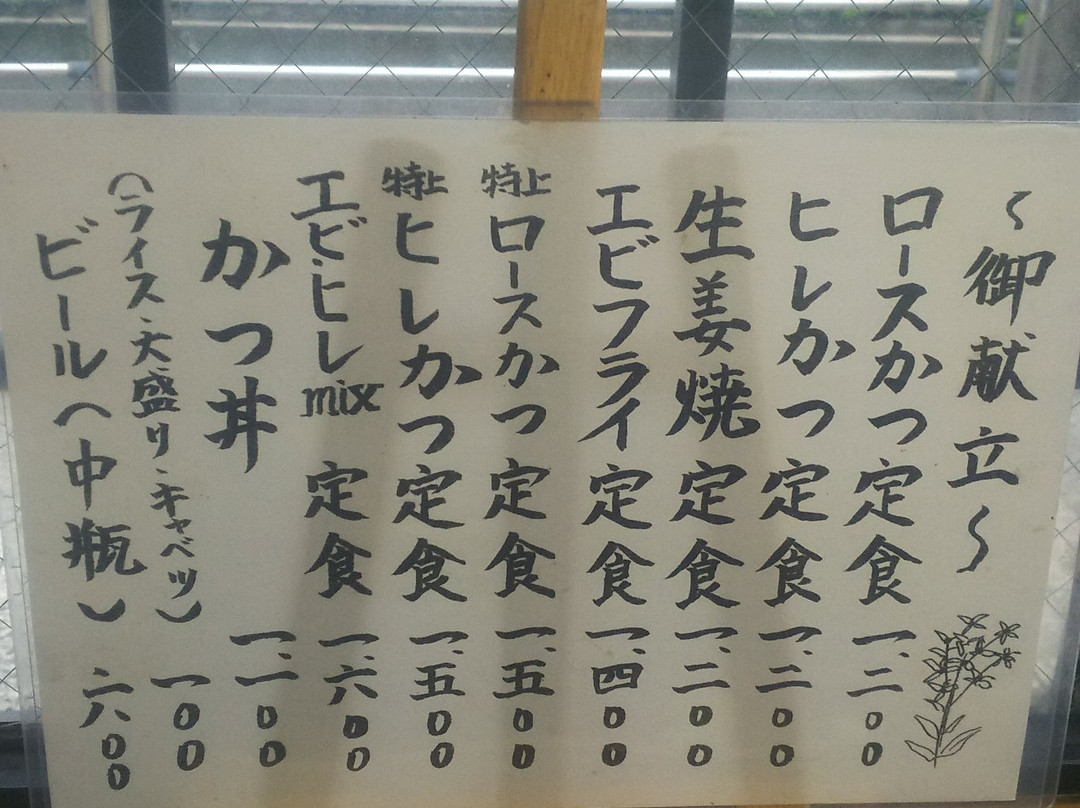 ～御献立～
ロースかつ定食 一、二〇〇
ヒレかつ定食 一、二〇〇
生姜焼定食 一、二〇〇
エビフライ定食 一、四〇〇
特上ロースかつ定食 一、五〇〇
特上ヒレかつ定食 一、五〇〇
エビ・ヒレmix定食 一、六〇〇
かつ丼 一、一〇〇
（ライス・大盛り・キャベツ） 一〇〇
ビール（中瓶） 六〇〇